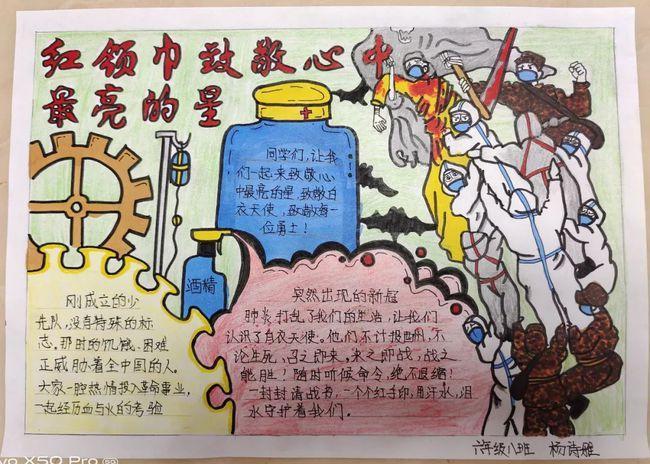 红领巾致敬心中
最亮的星
同学们,让我
们一起来致敬心
中最亮的星,致敬白
衣天使,致敬每一
位勇士!
酒精
刚成立的少
先队,没有特殊的标
志,那时的饥饿、困难
正威胁着全中国的人。
大家一腔热情投入革命事业,
一起经历血与火的考验
突然出现的新冠
肺炎打乱了我们的生活,让我们
认识了白衣天使。他们不计报酬,不
论生死,召之即来,来之即战,战之
能胜!随时听候命令,绝不退缩!
一封封请战书,一个个红手印,用汗水,泪
水守护着我们。
六年级八班 杨诗雅
vivo X50 Pro 5G